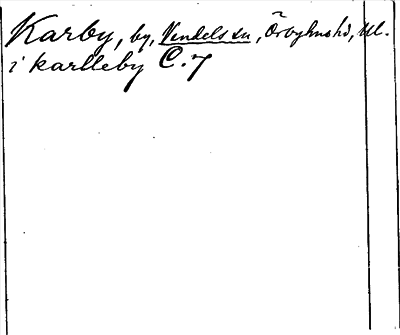 Karby, by, Vendels sn, Örbyhus hd, Upl.
i karlleby C. 7